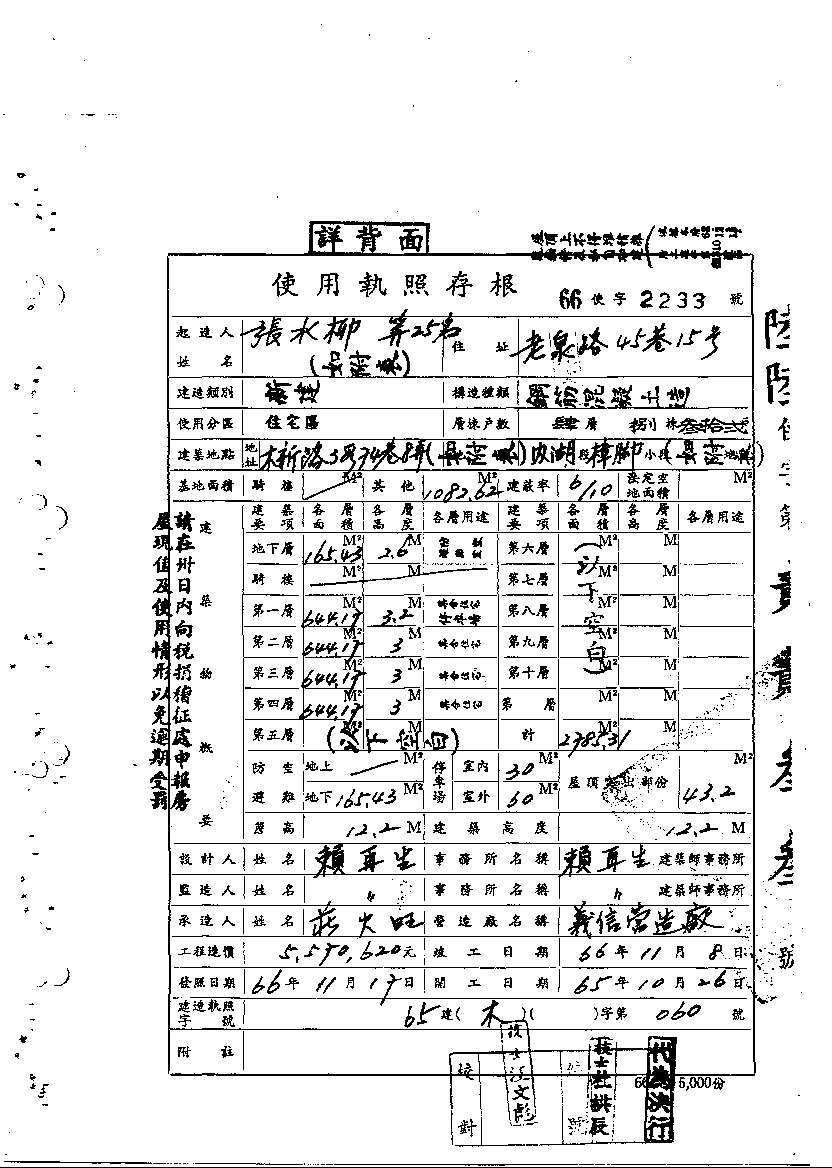 詳背面
使用執照存根
66 使字 2233 號
起造人姓名 張水柳 等25名 (如附表) 住址 老泉路45巷15号
建造類別 新建 構造種類 鋼筋混凝土造
使用分區 住宅區 層棟戶數 肆層 捌棟
建築地點 地址 木新路3段74巷8弄(如附表)內湖段樟腳小段(如附表)
基地面積 騎樓 M² 其他 1082.62 M² 建蔽率 6/10 法定空地面積 M²
建築要項 各層面積 各層高度 各層用途 建築要項 各層面積 各層高度 各層用途
地下層 165.43 M² 2.6 M 第六層 (以下空白) M² M
騎樓 M² M 第七層 M² M
第一層 644.17 M² 3.2 M 第八層 M² M
第二層 644.17 M² 3 M 第九層 M² M
第三層 644.17 M² 3 M 第十層 M² M
第四層 644.17 M² 3 M 第 層 M² M
第五層 (以下空白) 計 2785.31 M
防空避難 地上 M² 停車場 室內 30 M² 屋頂突出部份 43.2 M²
地下 165.43 M² 室外 60 M²
簷高 12.2 M 建築高度 12.2 M
設計人 姓名 賴再生 事務所名稱 賴再生 建築師事務所
監造人 姓名 〃 事務所名稱 〃 建築師事務所
承造人 姓名 莊火旺 營造廠名稱 義信營造廠
工程造價 5,570,620元 竣工日期 66年11月8日
發照日期 66年11月17日 開工日期 65年10月26日
建造執照字號 65建(木)( )字第 060 號
附註
建築物概要
請在卅日內向稅捐稽征處申報房
屋現值及使用情形以免逾期受罰
陸陸使字第貳貳叁叁號
校對
技士
代為決行
5,000份